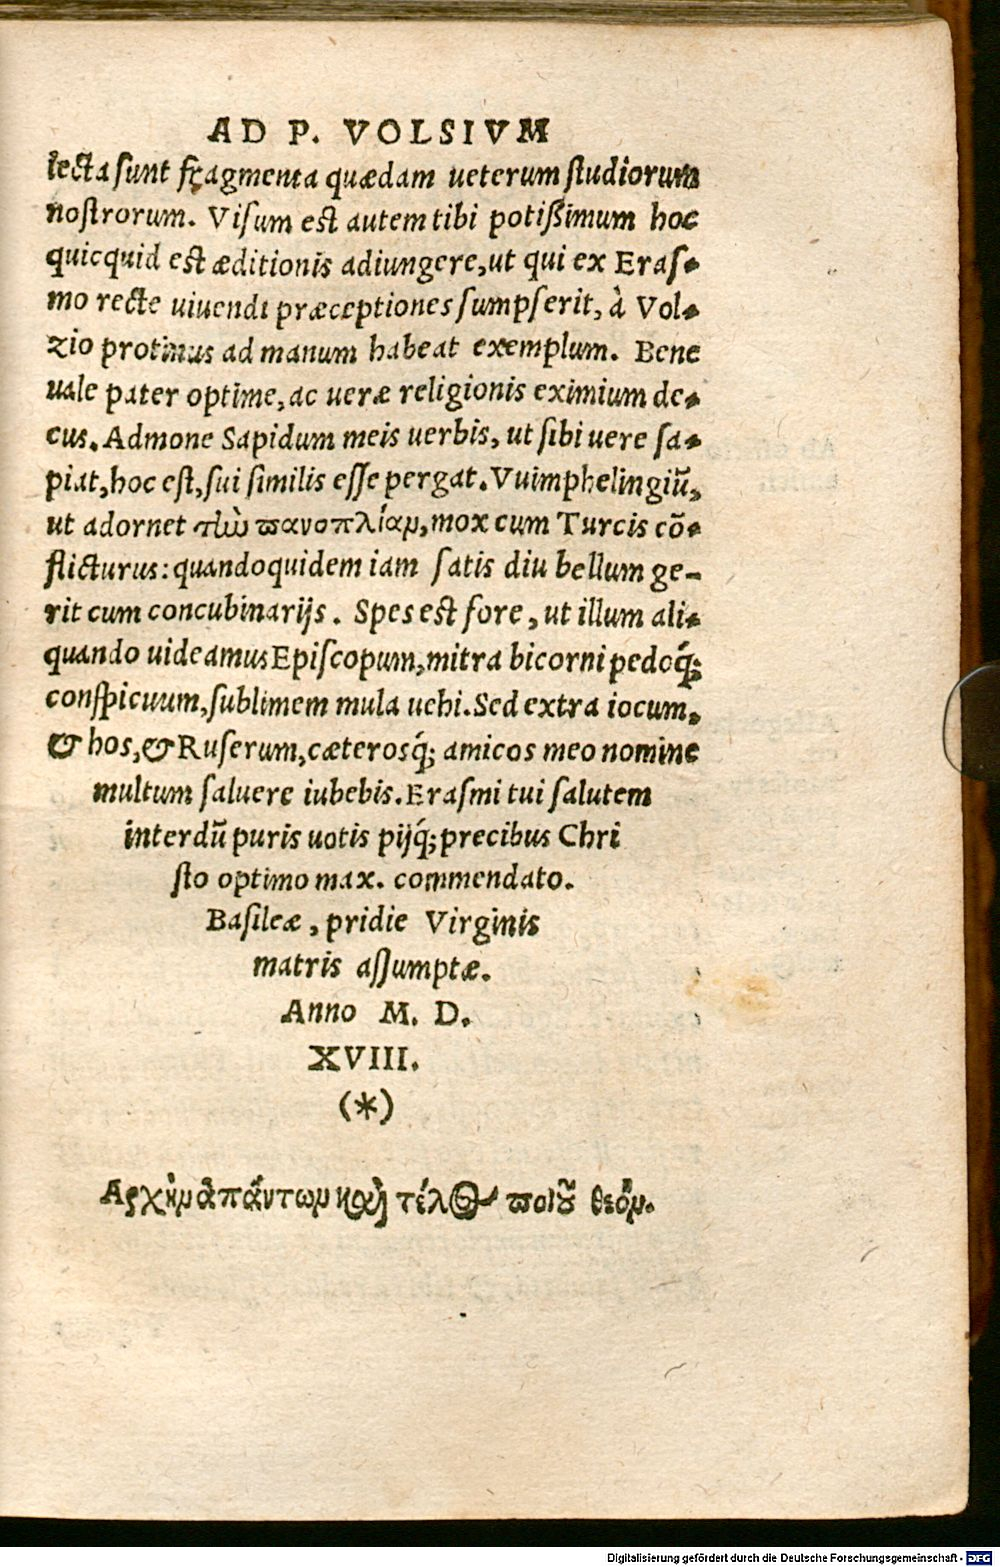 AD P. VOLSIVM
lecta sunt fragmenta quædam ueterum studiorum
nostrorum. Visum est autem tibi potißimum hoc
quicquid est æditionis adiungere, ut qui ex Eras-
mo recte uiuendi præceptiones sumpserit, à Vol-
zio protinus ad manum habeat exemplum. Bene
uale pater optime, ac ueræ religionis eximium de-
cus. Admone Sapidum meis uerbis, ut sibi uere sa-
piat, hoc est, sui similis esse pergat. Vuimphelingiũ,
ut adornet τὴν πανοπλίαν, mox cum Turcis cõ-
flicturus: quandoquidem iam satis diu bellum ge-
rit cum concubinarijs. Spes est fore, ut illum ali-
quando uideamus Episcopum, mitra bicorni pedoq́;
conspicuum, sublimem mula uehi. Sed extra iocum,
& hos, & Ruserum, cæterosq́; amicos meo nomine
multum saluere iubebis. Erasmi tui salutem
interdũ puris uotis pijq́; precibus Chri
sto optimo max. commendato.
Basileæ, pridie Virginis
matris assumptæ.
Anno M. D.
XVIII.
(*)
Αρχὴν ἁπάντων καὶ τέλος ποιοῦ θεόν.
Digitalisierung gefördert durch die Deutsche Forschungsgemeinschaft - DFG